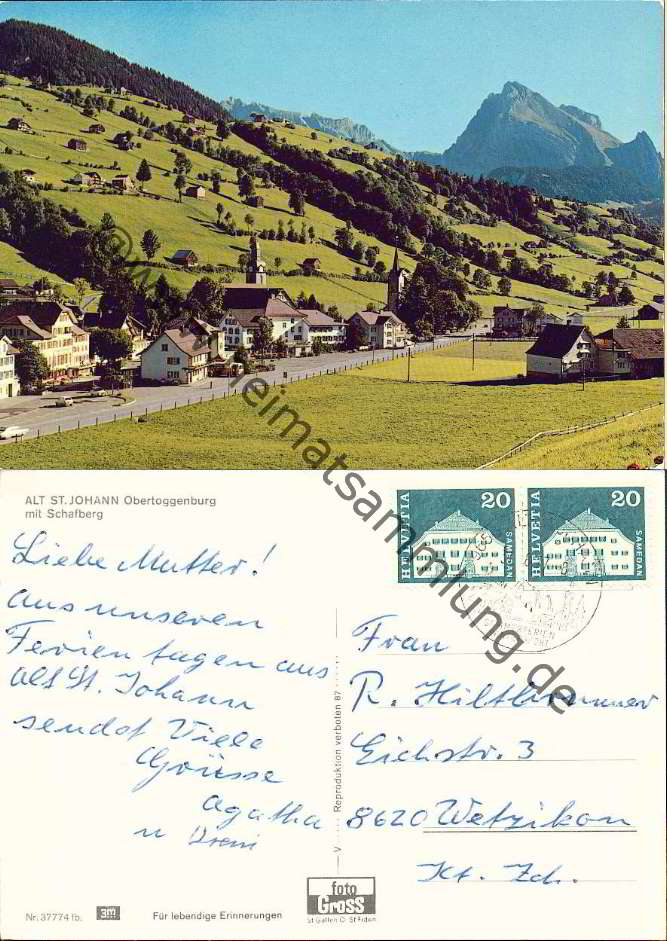 www.heimatsammlung.de
ALT ST. JOHANN Obertoggenburg
mit Schafberg
Liebe Mutter!
aus unseren
Ferientagen aus
alt St. Johann
sendet Viele
Grüsse
Agatha
u Vreni
HELVETIA 20 SAMEDAN
HELVETIA 20 SAMEDAN
Frau
R. Hiltbrunner
Eichstr. 3
8620 Wetzikon
Kt. Zch.
V Reproduktion verboten 87
Nr. 37774 fb.
3m
Für lebendige Erinnerungen
foto
Gross
St Gallen O St Fiden